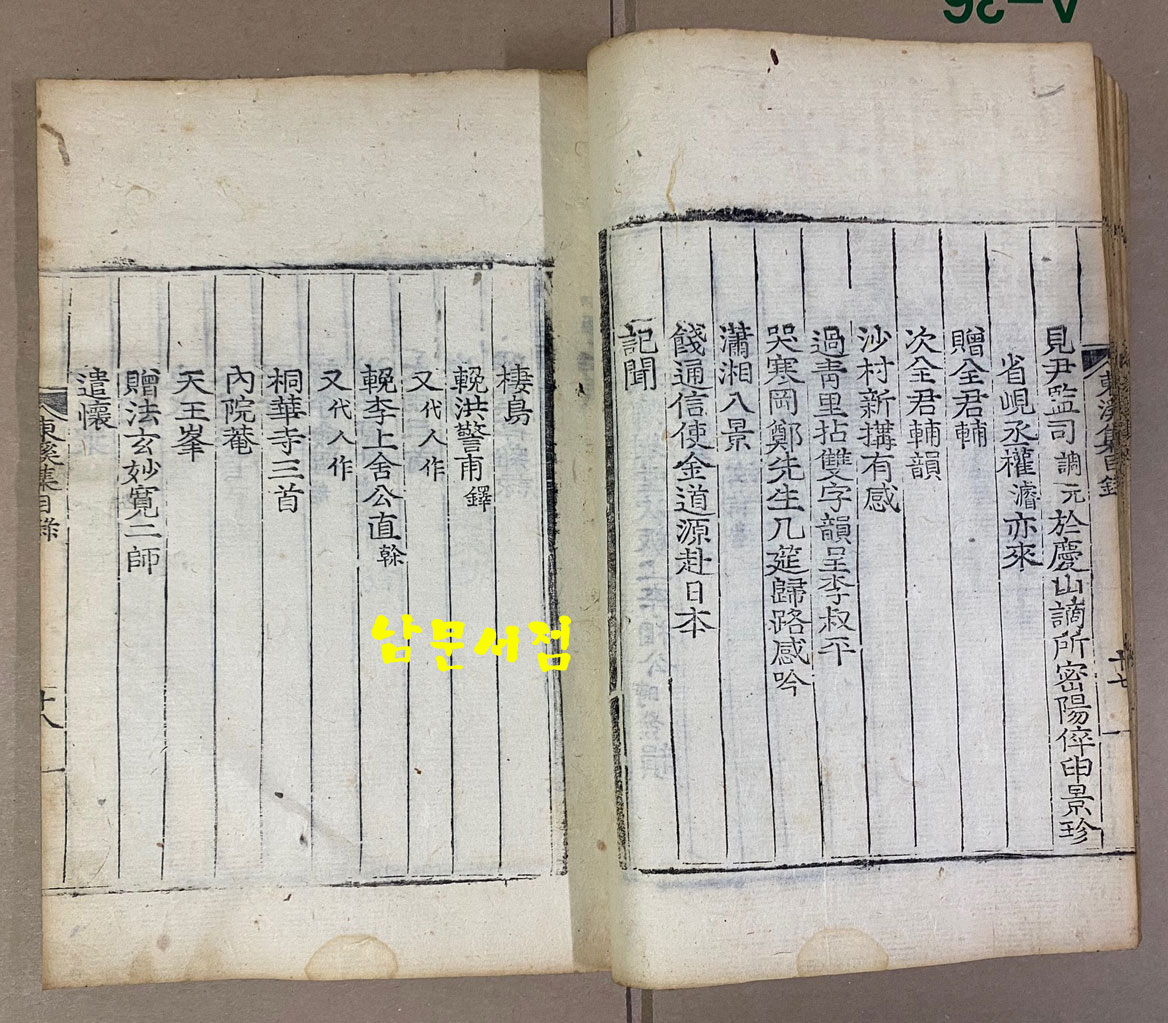 A-36
東溪集目錄
十七
見尹監司調元於慶山謫所密陽倅申景珍
省峴丞權濬亦來
贈全君輔
次全君輔韻
沙村新搆有感
過靑里拈雙字韻呈李叔平
哭寒岡鄭先生几筵歸路感吟
瀟湘八景
餞通信使金道源赴日本
記聞
棲鳥
輓洪警甫鐸
又代人作
輓李上舍公直榦
又代人作
桐華寺三首
內院菴
天王峯
贈法玄妙寬二師
遣懷
東溪集目錄
十八
남문서점